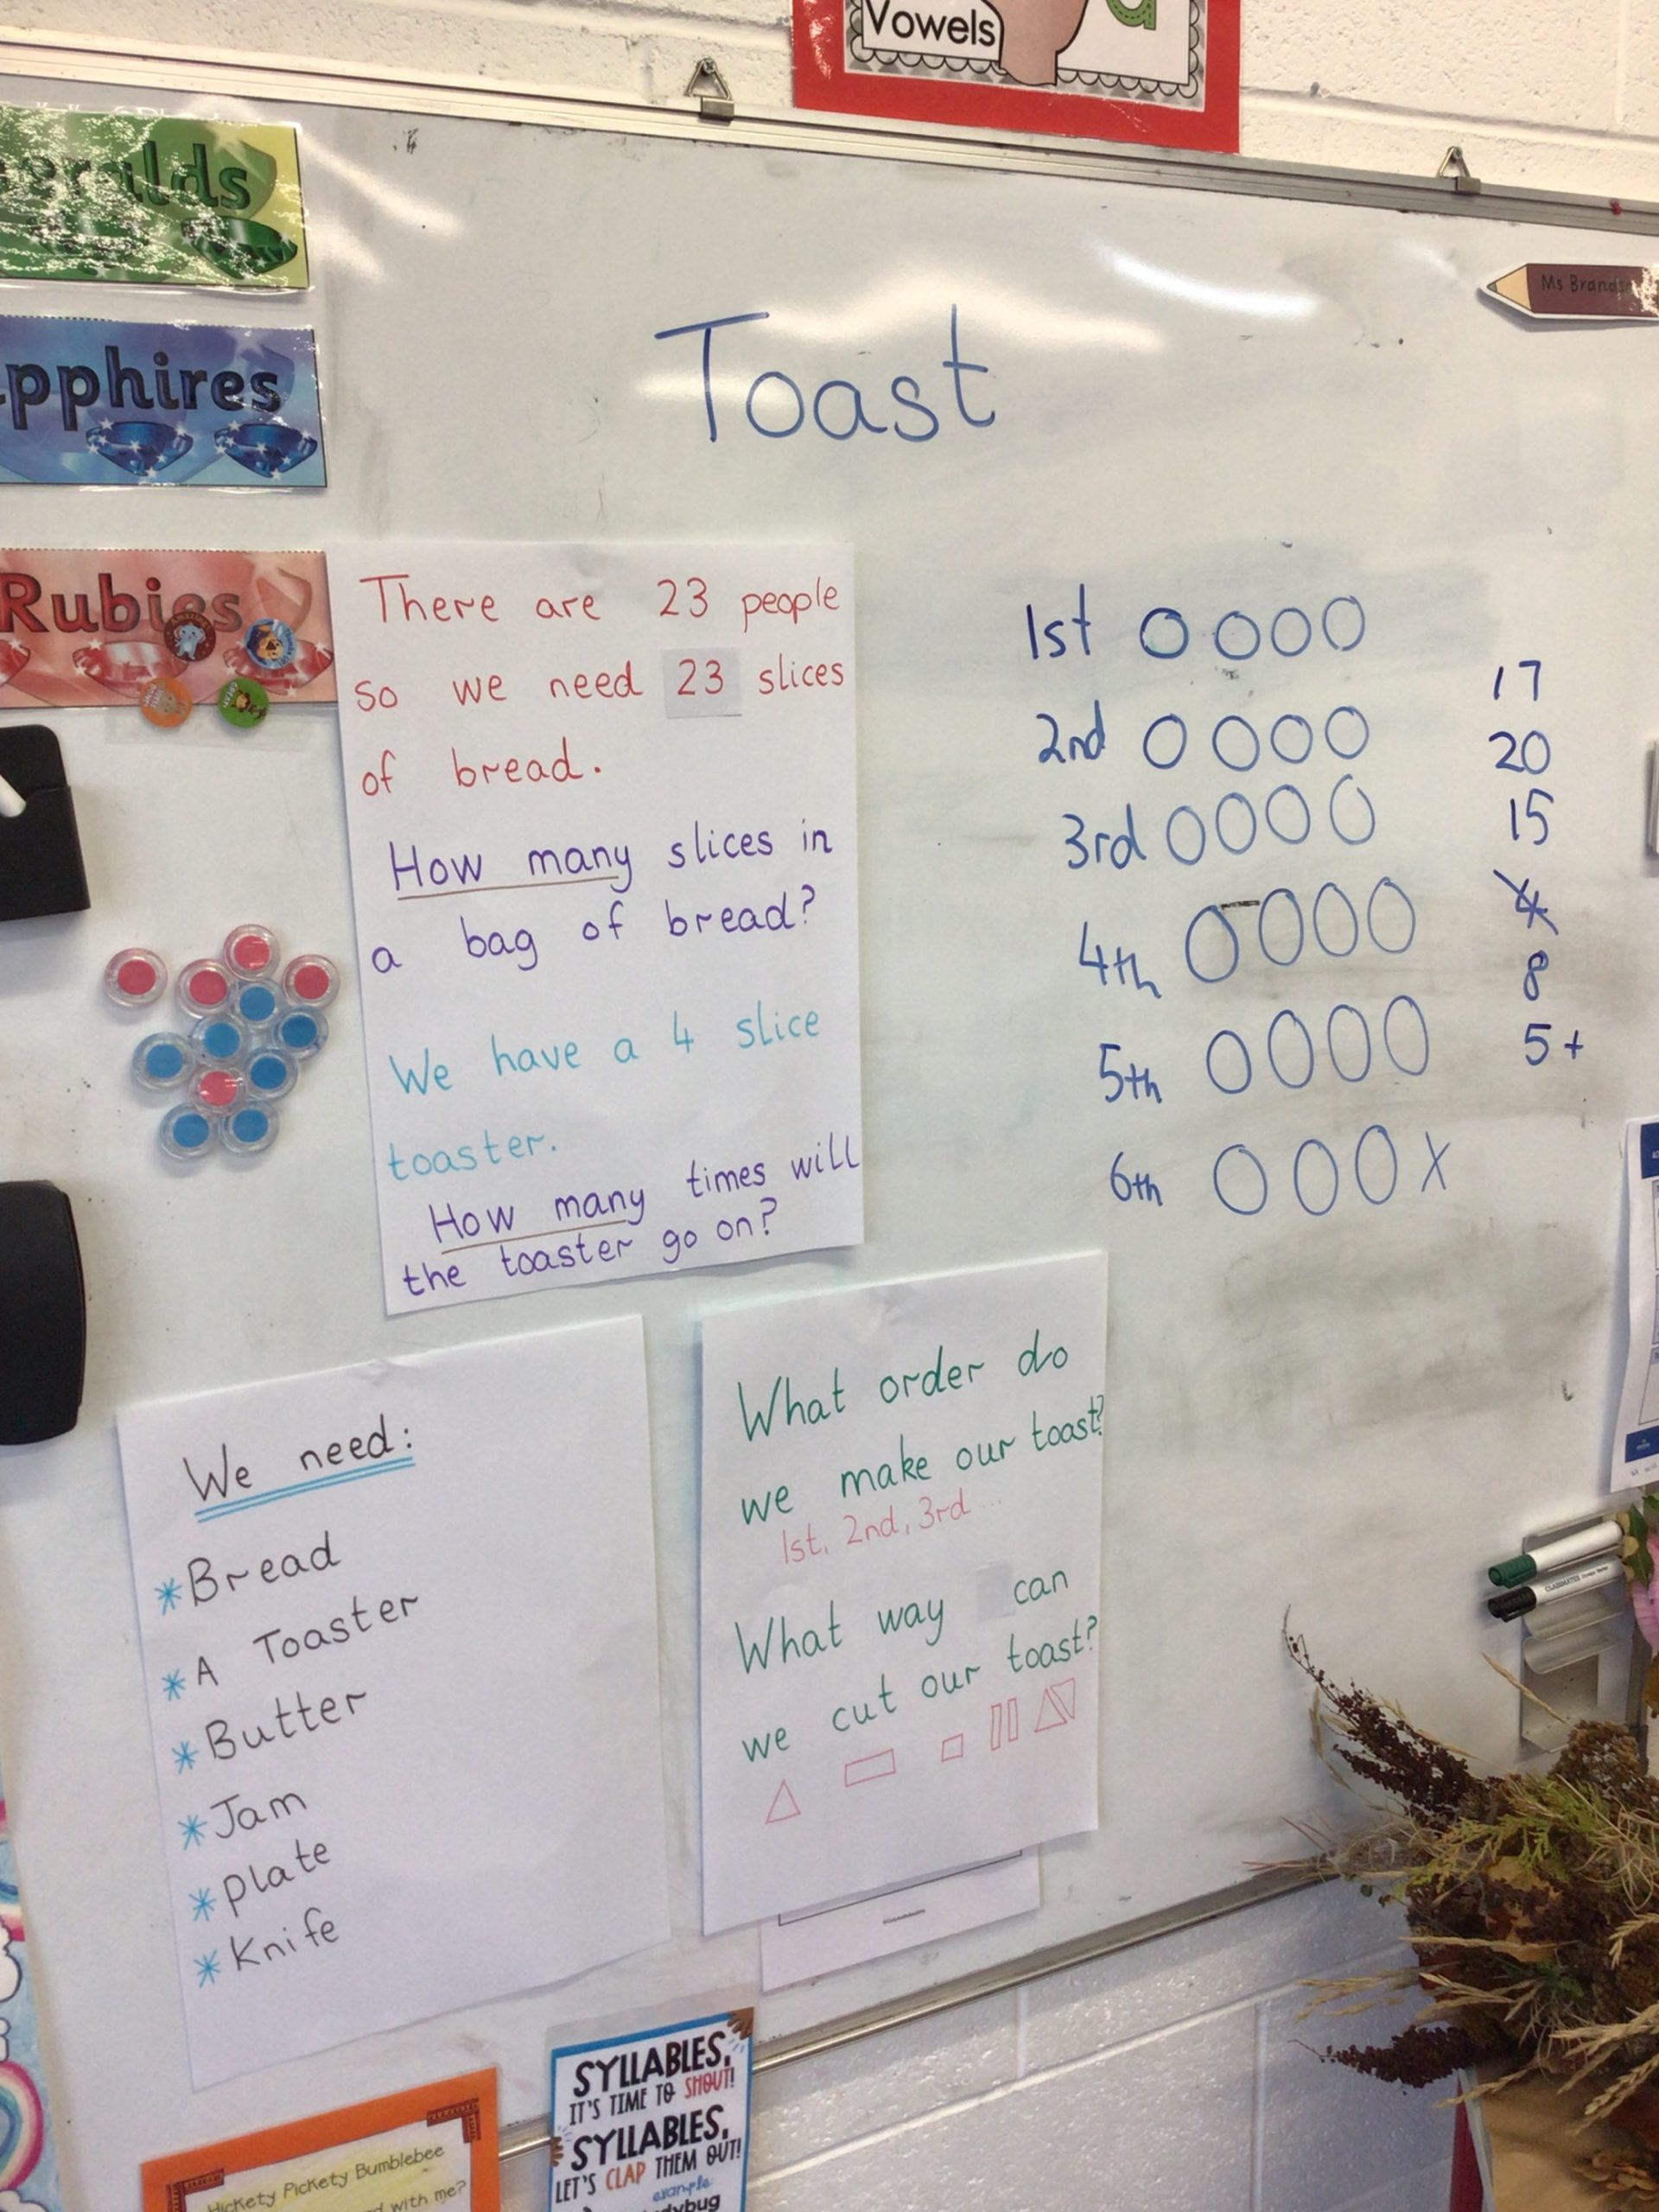 Vowels
Ms
Toast
Rubies
There are 23 people
so we need 23 slices
of bread.
How many slices in
a bag of bread?
We have a 4 slice
toaster.
How many times will
the toaster go on?
1st O O O O
2nd O O O O
3rd O O O O
4th O O O O
5th O O O O
6th O O O X
17
20
15
4
8
5+
We need:
*Bread
*A Toaster
*Butter
*Jam
*Plate
*Knife
What order do
we make our toast?
1st, 2nd, 3rd ...
What way can
we cut our toast?
SYLLABLES,
IT'S TIME TO SHOUT!
SYLLABLES,
LET'S CLAP THEM OUT!
example
Hickety Pickety Bumblebee
with me?